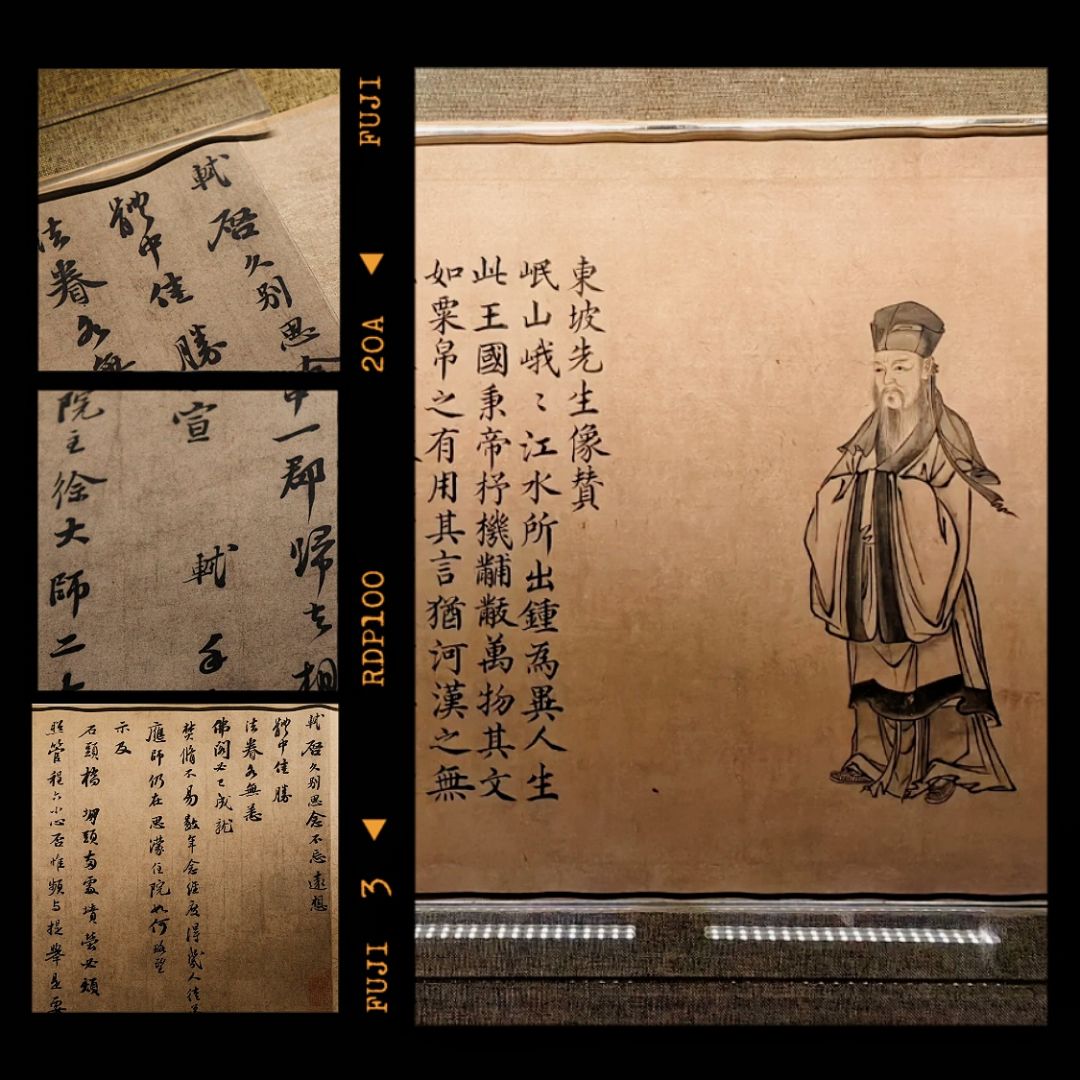 軾
啓久别思
體中佳勝
法眷各無
中一郡歸去相
宣
軾手
院主徐大師二
軾啓久别思念不忘遠想
體中佳勝
法眷各無恙
佛閣必已成就
焚脩不易數年念經度得幾人徒弟
應師仍在思濛住院如何略望
示及
石頭橋 堋頭兩處墳塋必煩
照管程六小心否惟頻与提舉是要
FUJI
20A
RDP100
3
FUJI
東坡先生像贊
岷山峨〻江水所出鍾為異人生
此王國秉帝杼機黼黻萬物其文
如粟帛之有用其言猶河漢之無